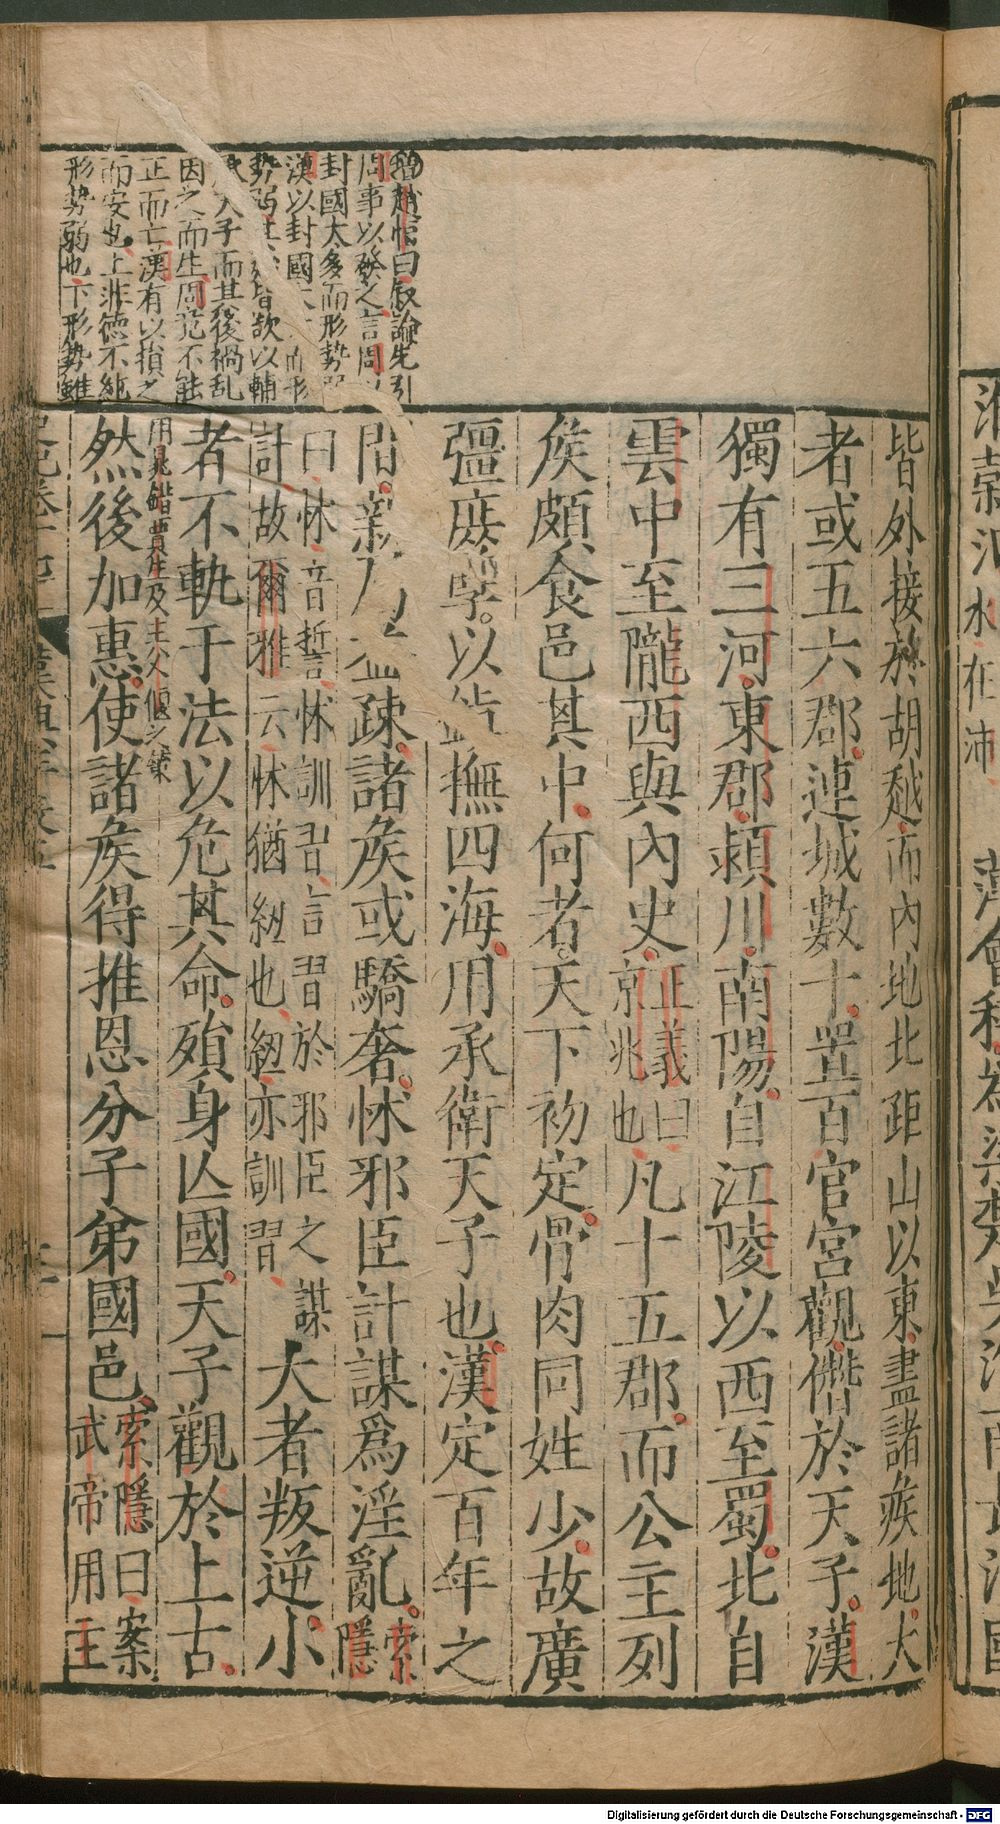 增趙恒曰叙論先引
周事以發之言周
封國太多而形勢
漢以封國
勢弱 皆欲以輔
天子而其後禍乱
因之而生周危不能
正而亡漢有以損之
而安也上非德不純
形勢弱也下形勢雖
皆外接於胡越而內地北距山以東盡諸矦地大
者或五六郡連城數十置百官宮觀僭於天子漢
獨有三河東郡頴川南陽自江陵以西至蜀北自
雲中至隴西與內史正義曰京兆也凡十五郡而公主列
矦頗食邑其中何者天下初定骨肉同姓少故廣
彊庶孽以 撫四海用承衛天子也漢定百年之
間 疎諸矦或驕奢怵邪臣計謀爲淫亂索隱
曰怵音誓言怵訓習言習於邪臣之謀計故爾雅云怵猶紐也紐亦訓習大者叛逆小
者不軌于法以危其命殞身亾國天子觀於上古
用晁錯賈生及主父偃之策
然後加惠使諸矦得推恩分子弟國邑索隱曰案武帝用主
Digitalisierung gefördert durch die Deutsche Forschungsgemeinschaft - DFG